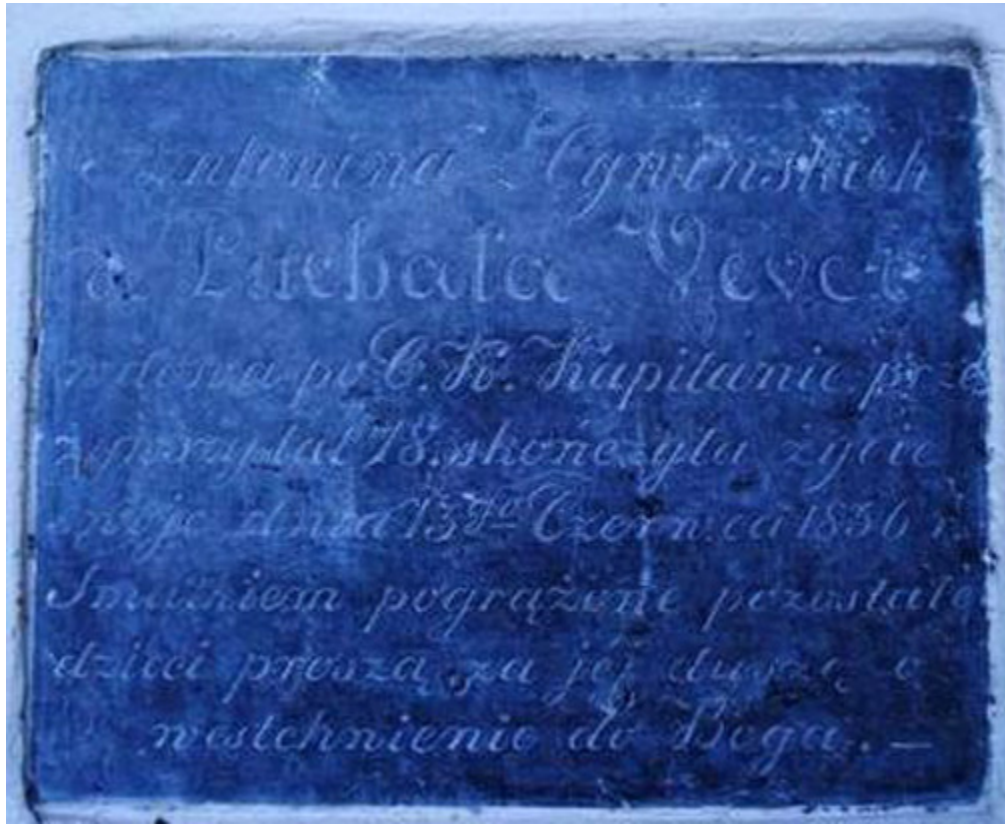 Antonina
a Puchala
wdowa po C. K. Kapitanie prze
żywszy lat 78. skończyła życie
swoje dnia 13go Czerwca 1856 r.
Smutkiem pogrążone pozostałe
dzieci proszą za jej duszę o
westchnienie do Boga. —